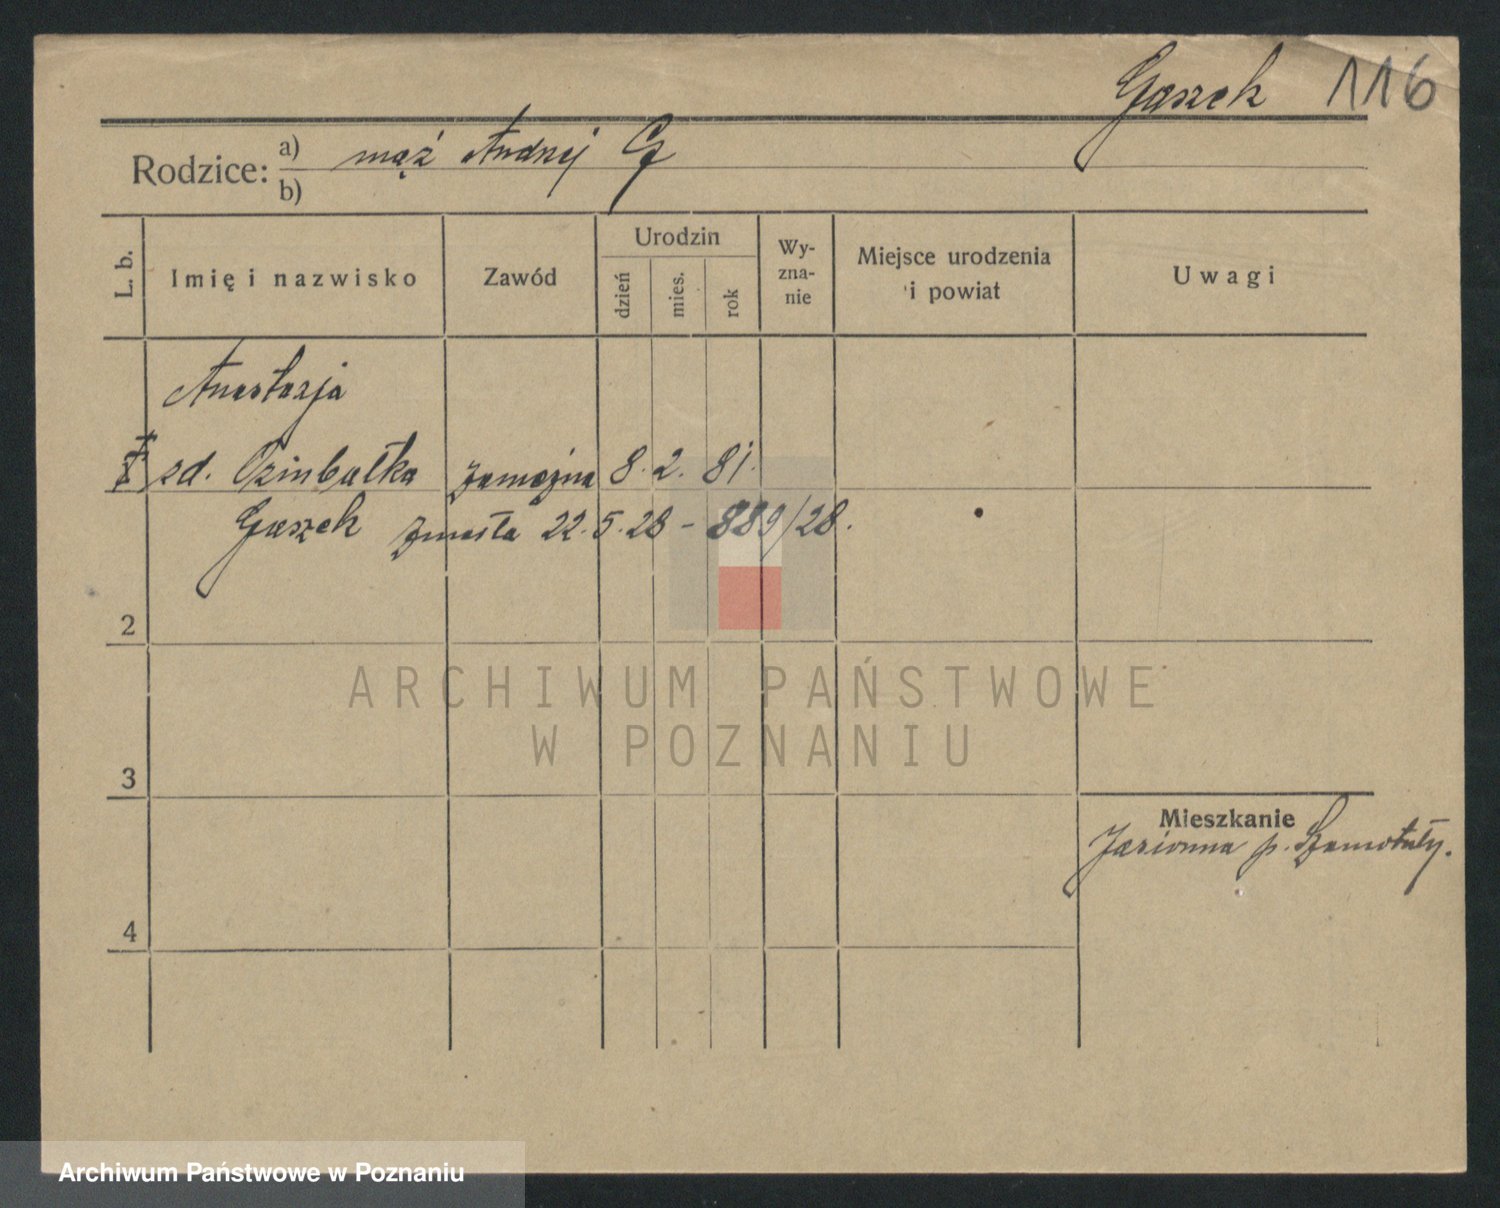 Gaszek 116
Rodzice: a) mąż Andrzej
b)
L. b.
Imię i nazwisko
Zawód
Urodzin
dzień
mies.
rok
Wy-
zna-
nie
Miejsce urodzenia
i powiat
Uwagi
Anastazja
zd. Czimbałka zamężna 8. 2. 81.
Gaszek zmarła 22.5.28 - 889/28.
2
3
4
Mieszkanie
Jasionna p. Szamotuły.
ARCHIWUM PAŃSTWOWE
W POZNANIU
Archiwum Państwowe w Poznaniu